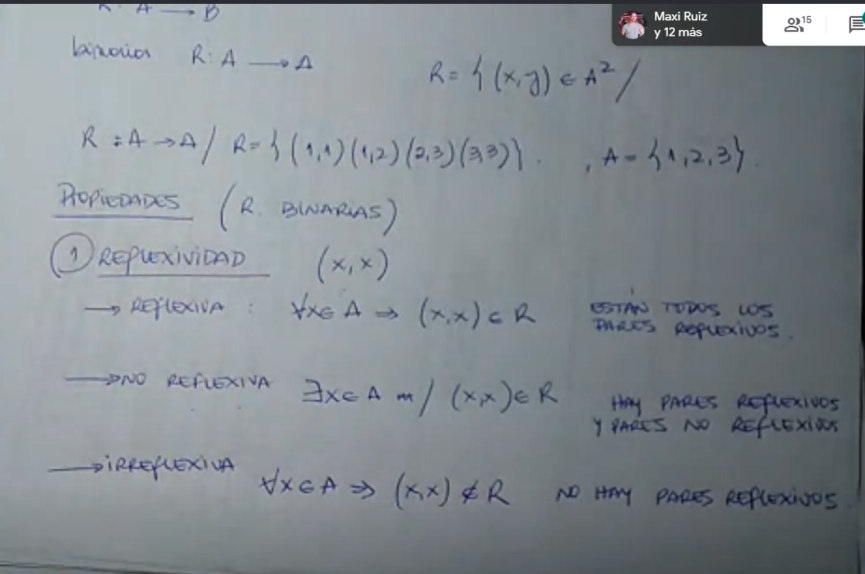 R: A → B
Maxi Ruiz
y 12 más
15
binarias R: A → A
R = { (x, y) ∈ A² /
R : A → A / R = { (1,1) (1,2) (2,3) (3,3) } . , A = {1, 2, 3} .
PROPIEDADES (R. BINARIAS)
① REFLEXIVIDAD (x, x)
→ REFLEXIVA : ∀x ∈ A ⇒ (x, x) ∈ R ESTÁN TODOS LOS
PARES REFLEXIVOS.
→ NO REFLEXIVA ∃x ∈ A / (x, x) ∈ R HAY PARES REFLEXIVOS
Y PARES NO REFLEXIVOS
→ IRREFLEXIVA ∀x ∈ A ⇒ (x, x) ∉ R NO HAY PARES REFLEXIVOS